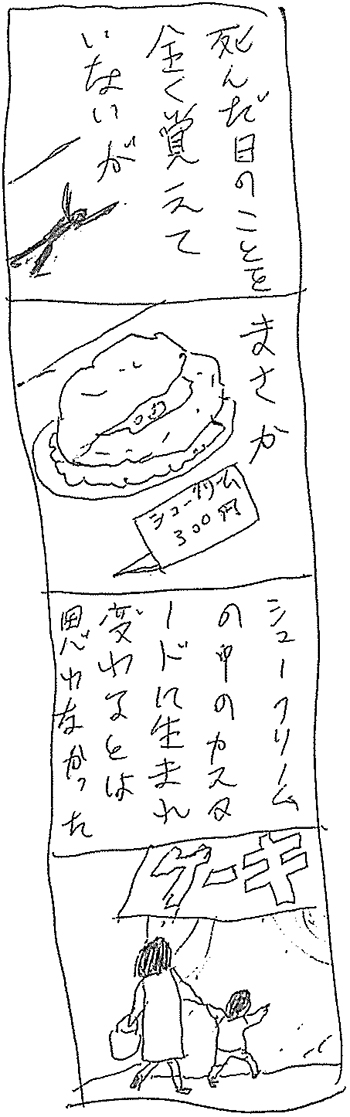 死んだ日のことを
全く覚えて
いないが
まさか
シュークリーム
300円
シュークリーム
の中のカスタ
ードに生まれ
変わるとは
思わなかった
ケーキ